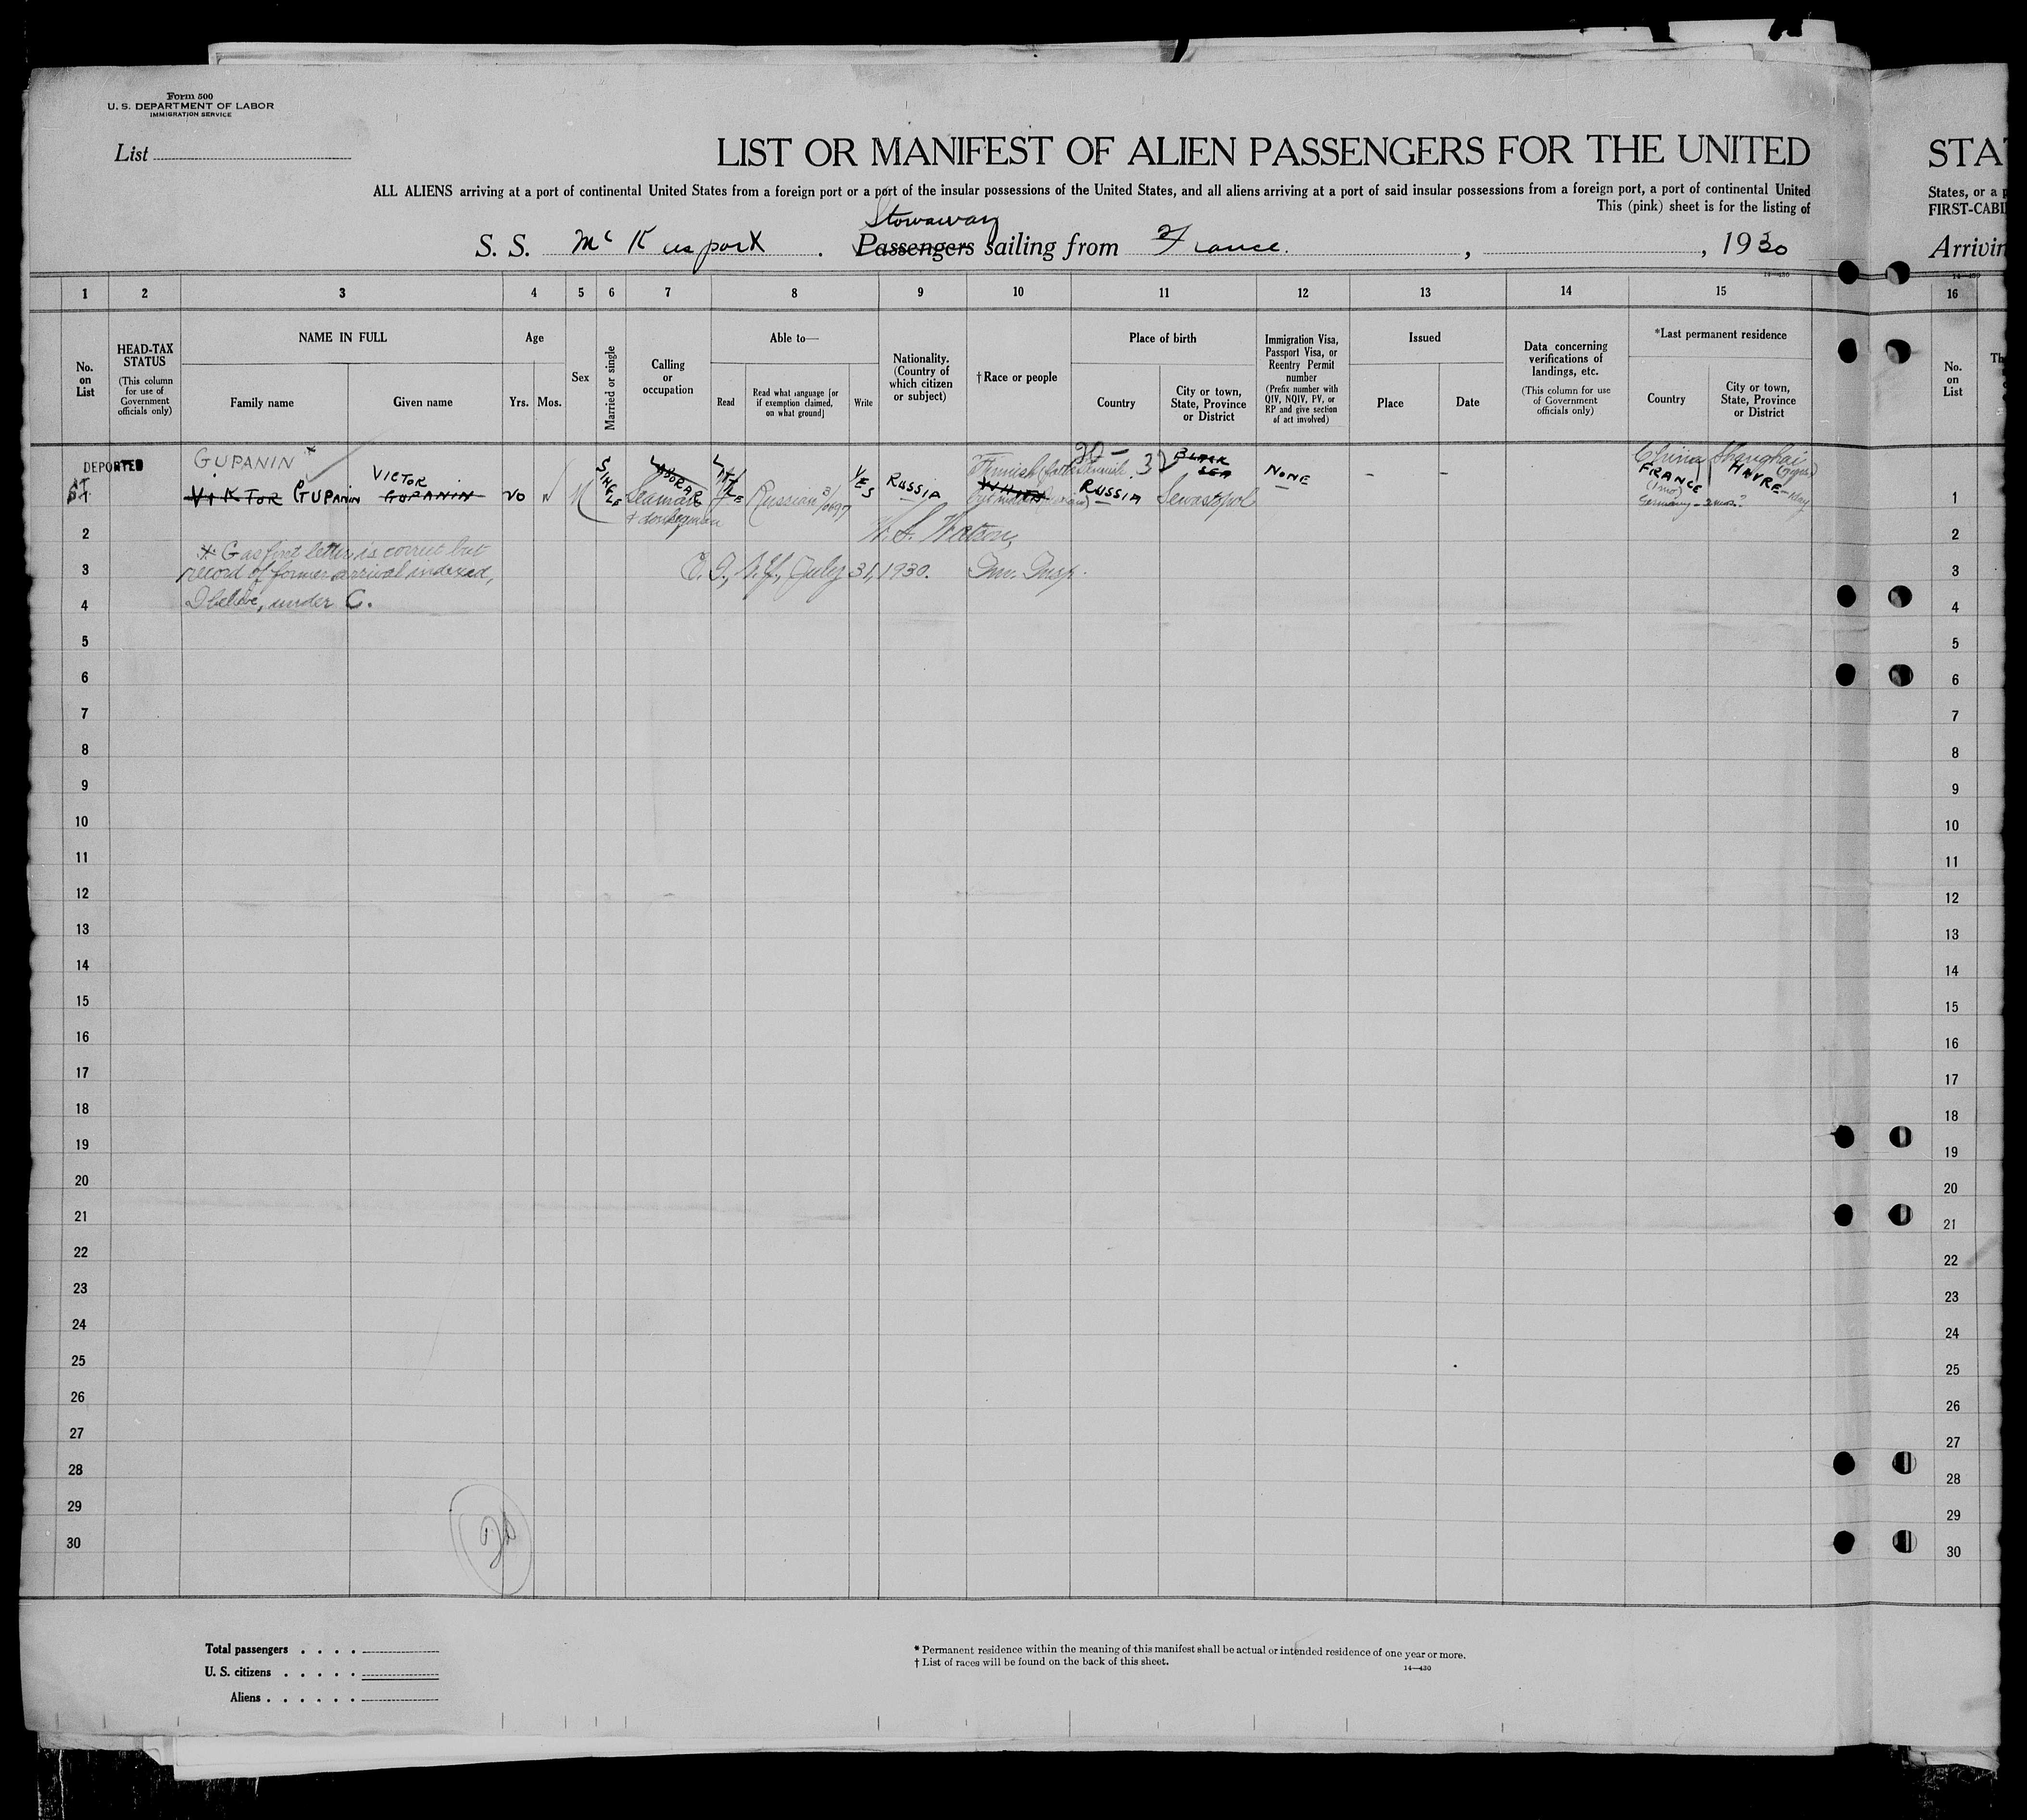 Form 500
U. S. DEPARTMENT OF LABOR
IMMIGRATION SERVICE
List
LIST OR MANIFEST OF ALIEN PASSENGERS FOR THE UNITED
STA
ALL ALIENS arriving at a port of continental United States from a foreign port or a port of the insular possessions of the United States, and all aliens arriving at a port of said insular possessions from a foreign port, a port of continental United
States, or a p
This (pink) sheet is for the listing of
FIRST-CABI
Stowaway
S. S. McKeesport . Passengers sailing from France. , , 1930
Arrivin
14—430
1 2 3 4 5 6 7 8 9 10 11 12 13 14 15 16
No. on List
HEAD-TAX STATUS
(This column for use of Government officials only)
NAME IN FULL
Family name
Given name
Age
Yrs.
Mos.
Sex
Married or single
Calling or occupation
Able to—
Read
Read what language [or if exemption claimed, on what ground]
Write
Nationality. (Country of which citizen or subject)
†Race or people
Place of birth
Country
City or town, State, Province or District
Immigration Visa, Passport Visa, or Reentry Permit number
(Prefix number with QIV, NQIV, PV, or RP and give section of act involved)
Issued
Place
Date
Data concerning verifications of landings, etc.
(This column for use of Government officials only)
*Last permanent residence
Country
City or town, State, Province or District
No. on List
Th
DEPORTED
ST
GUPANIN *
VIKTOR GUPANIN
VICTOR
GUPANIN
M
SINGLE
LABORAR
Seaman
& donkeyman
Russian
YES
RUSSIA
Finnish
WHITE
20 –
32
RUSSIA
BLACK SEA
Sewastopol
NONE
–
–
China
Shanghai
FRANCE
HAVRE – May
(1 mo)
Germany – 2 mos?
1
2
W. S. Watson,
2
* G as first letter is correct but
3
record of former arrival indexed,
E. I., N.Y., July 31, 1930.
Imm. Insp.
3
4
I believe, under C.
4
5 5
6 6
7 7
8 8
9 9
10 10
11 11
12 12
13 13
14 14
15 15
16 16
17 17
18 18
19 19
20 20
21 21
22 22
23 23
24 24
25 25
26 26
27 27
28 28
29 29
30 30
Total passengers . . . .
U. S. citizens . . . . .
Aliens . . . . . .
* Permanent residence within the meaning of this manifest shall be actual or intended residence of one year or more.
† List of races will be found on the back of this sheet.
14—430